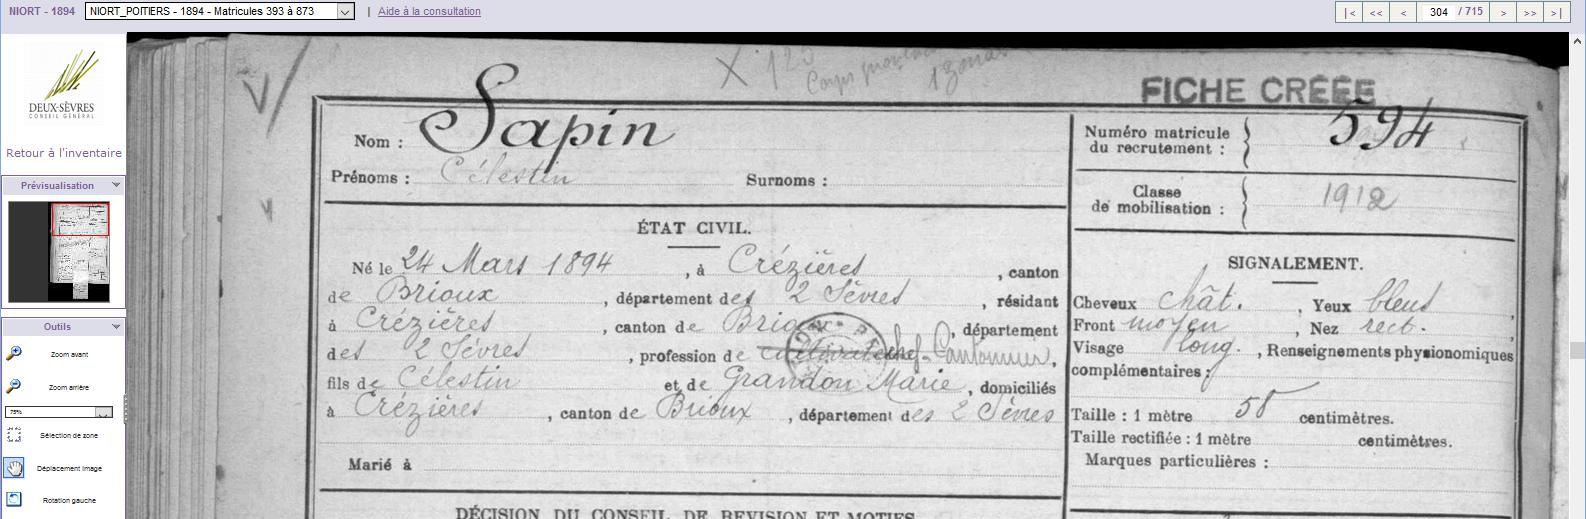 NIORT - 1894 NIORT_POITIERS - 1894 - Matricules 393 à 873 | Aide à la consultation |< << < 304 / 715 > >> >|
DEUX-SÈVRES
CONSEIL GÉNÉRAL
Retour à l'inventaire
Prévisualisation
Outils
Zoom avant
Zoom arrière
75%
Sélection de zone
Déplacement image
Rotation gauche
X 125
Corps
FICHE CRÉÉE
Nom : Sapin
Prénoms : Célestin Surnoms :
Numéro matricule
du recrutement : 594
Classe
de mobilisation : 1912
ÉTAT CIVIL.
Né le 24 Mars 1894, à Crézières, canton
de Brioux, département des 2 Sèvres, résidant
à Crézières, canton de Brioux, département
des 2 Sèvres, profession de cultivateur chef-Cantonnier,
fils de Célestin et de Grandon Marie, domiciliés
à Crézières, canton de Brioux, département des 2 Sèvres
Marié à
SIGNALEMENT.
Cheveux chât., Yeux bleus
Front moyen, Nez rect.
Visage long., Renseignements physionomiques
complémentaires :
Taille : 1 mètre 58 centimètres.
Taille rectifiée : 1 mètre centimètres.
Marques particulières :
DÉCISION DU CONSEIL DE REVISION ET MOTIFS